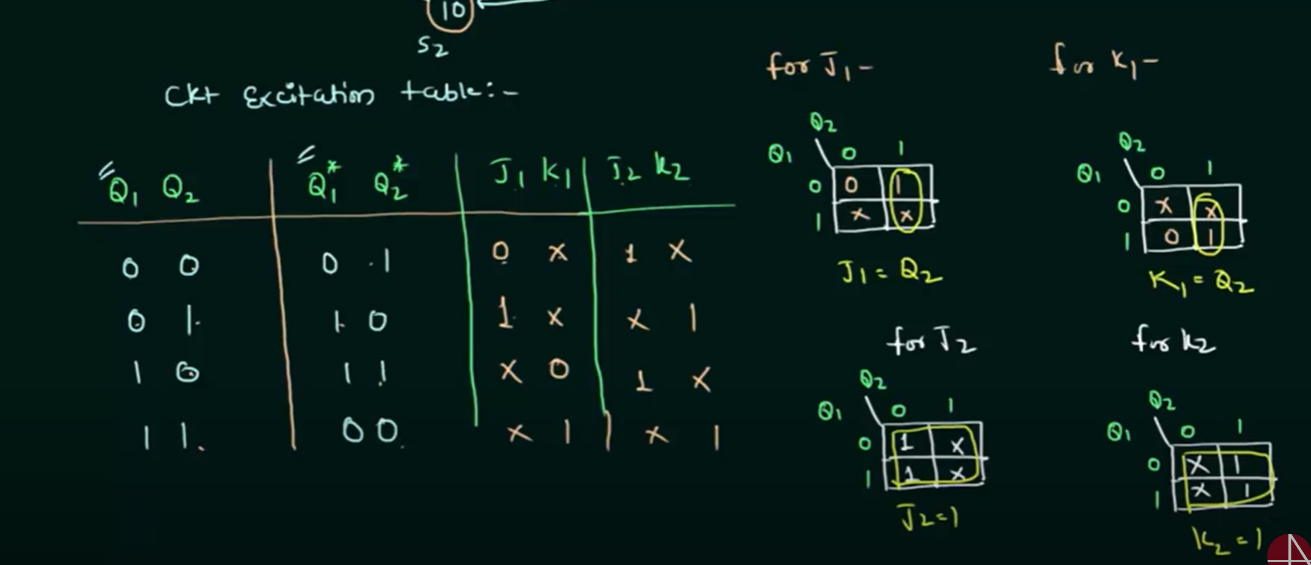 10
S2
Ckt Excitation table:-
Q1 Q2 Q1* Q2* J1 K1 J2 K2
0 0 0 1 0 x 1 x
0 1 1 0 1 x x 1
1 0 1 1 x 0 1 x
1 1 0 0 x 1 x 1
for J1 -
Q2
Q1 0 1
0 0 1
1 x x
J1 = Q2
for K1 -
Q2
Q1 0 1
0 x x
1 0 1
K1 = Q2
for J2
Q2
Q1 0 1
0 1 x
1 1 x
J2 = 1
for K2
Q2
Q1 0 1
0 x 1
1 x 1
K2 = 1